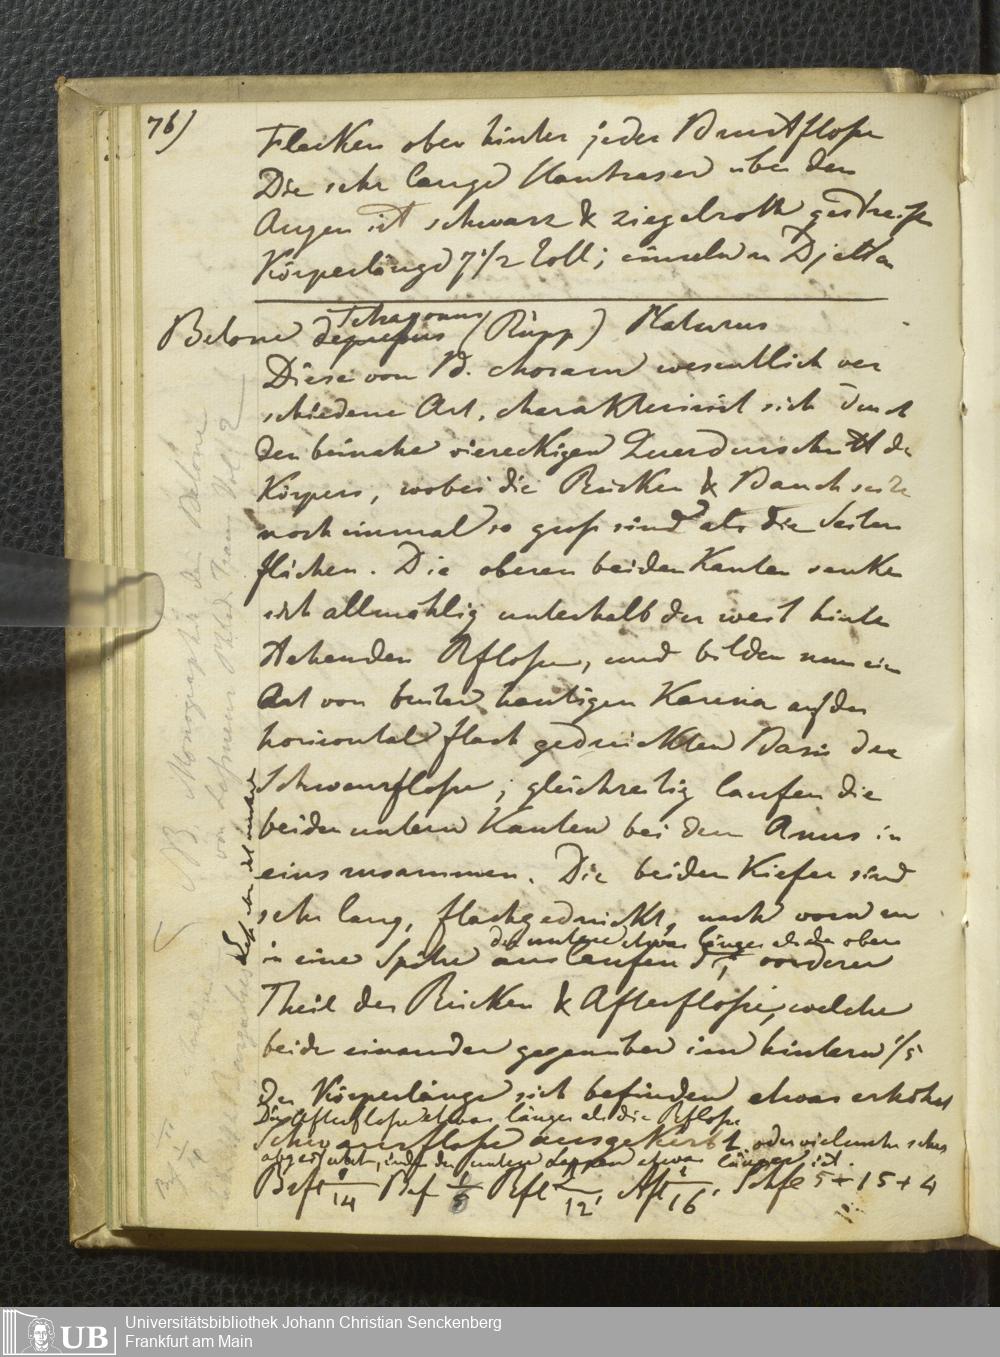 76)
Flecken oben hinter jeder Brustflosse
Die sehr lange Hautfaser über den
Augen ist schwarz & ziegelroth gestreift
Körperlänge 7 1/2 Zoll; einzeln in Djetta
Tetragonus
Belone depressus (Rüpp) Katurus
Diese von B. choram wesentlich ver
schiedene Art, charakterisirt sich durch
den beinahe viereckigen Querdurschnitt des
Körpers, wobei die Rücken & Bauch seite
noch einmal so gross sind als die Seiten
flächen. Die oberen beiden Kanten senken
sich allmählig unterhalb der weit hinten
stehenden Rflosse, und bilden nun eine
Art von breiter hautigen Karina auf der
horizontal flach gedruckten Basis der
Schwanzflosse; gleichzeitig laufen die
beiden untern Kanten bei dem Anus in
eins zusammen. Die beiden Kiefer sind
sehr lang, flachgedruckt, nach vorn zu
die untere etwas länger als der obere
in eine Spitze auslaufend, vorderer
Theil der Rücken & Afterflosse, welche
beide einander gegenüber im hintern 1/5
der Körperlänge sich befinden etwas erhöhet
Die Afterflosse etwas länger als die Rflosse
Schwanzflosse ausgekerbt oder vielmehr schief
abgestutzt, indem der untere Lappen etwas länger ist.
Brfl 1/14 Bsf 1/5 Rfl 1/12, Afl 1/16. Schfl 5+15+4
NB Monographie der Belone
von